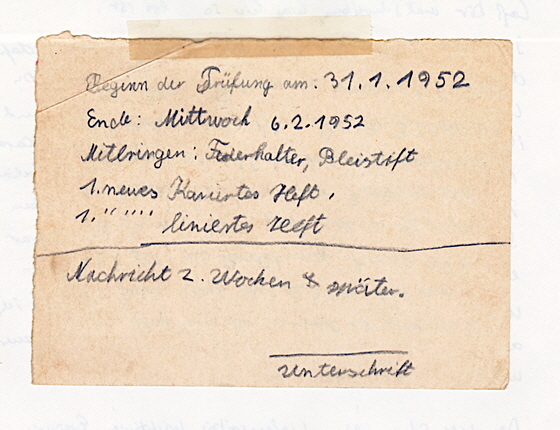 Beginn der Prüfung am: 31.1.1952
Ende: Mittwoch 6.2.1952
Mitbringen: Federhalter, Bleistift
1. neues Kariertes Heft,
1. " " " " liniertes Heft
Nachricht 2. Wochen später.
Unterschrift